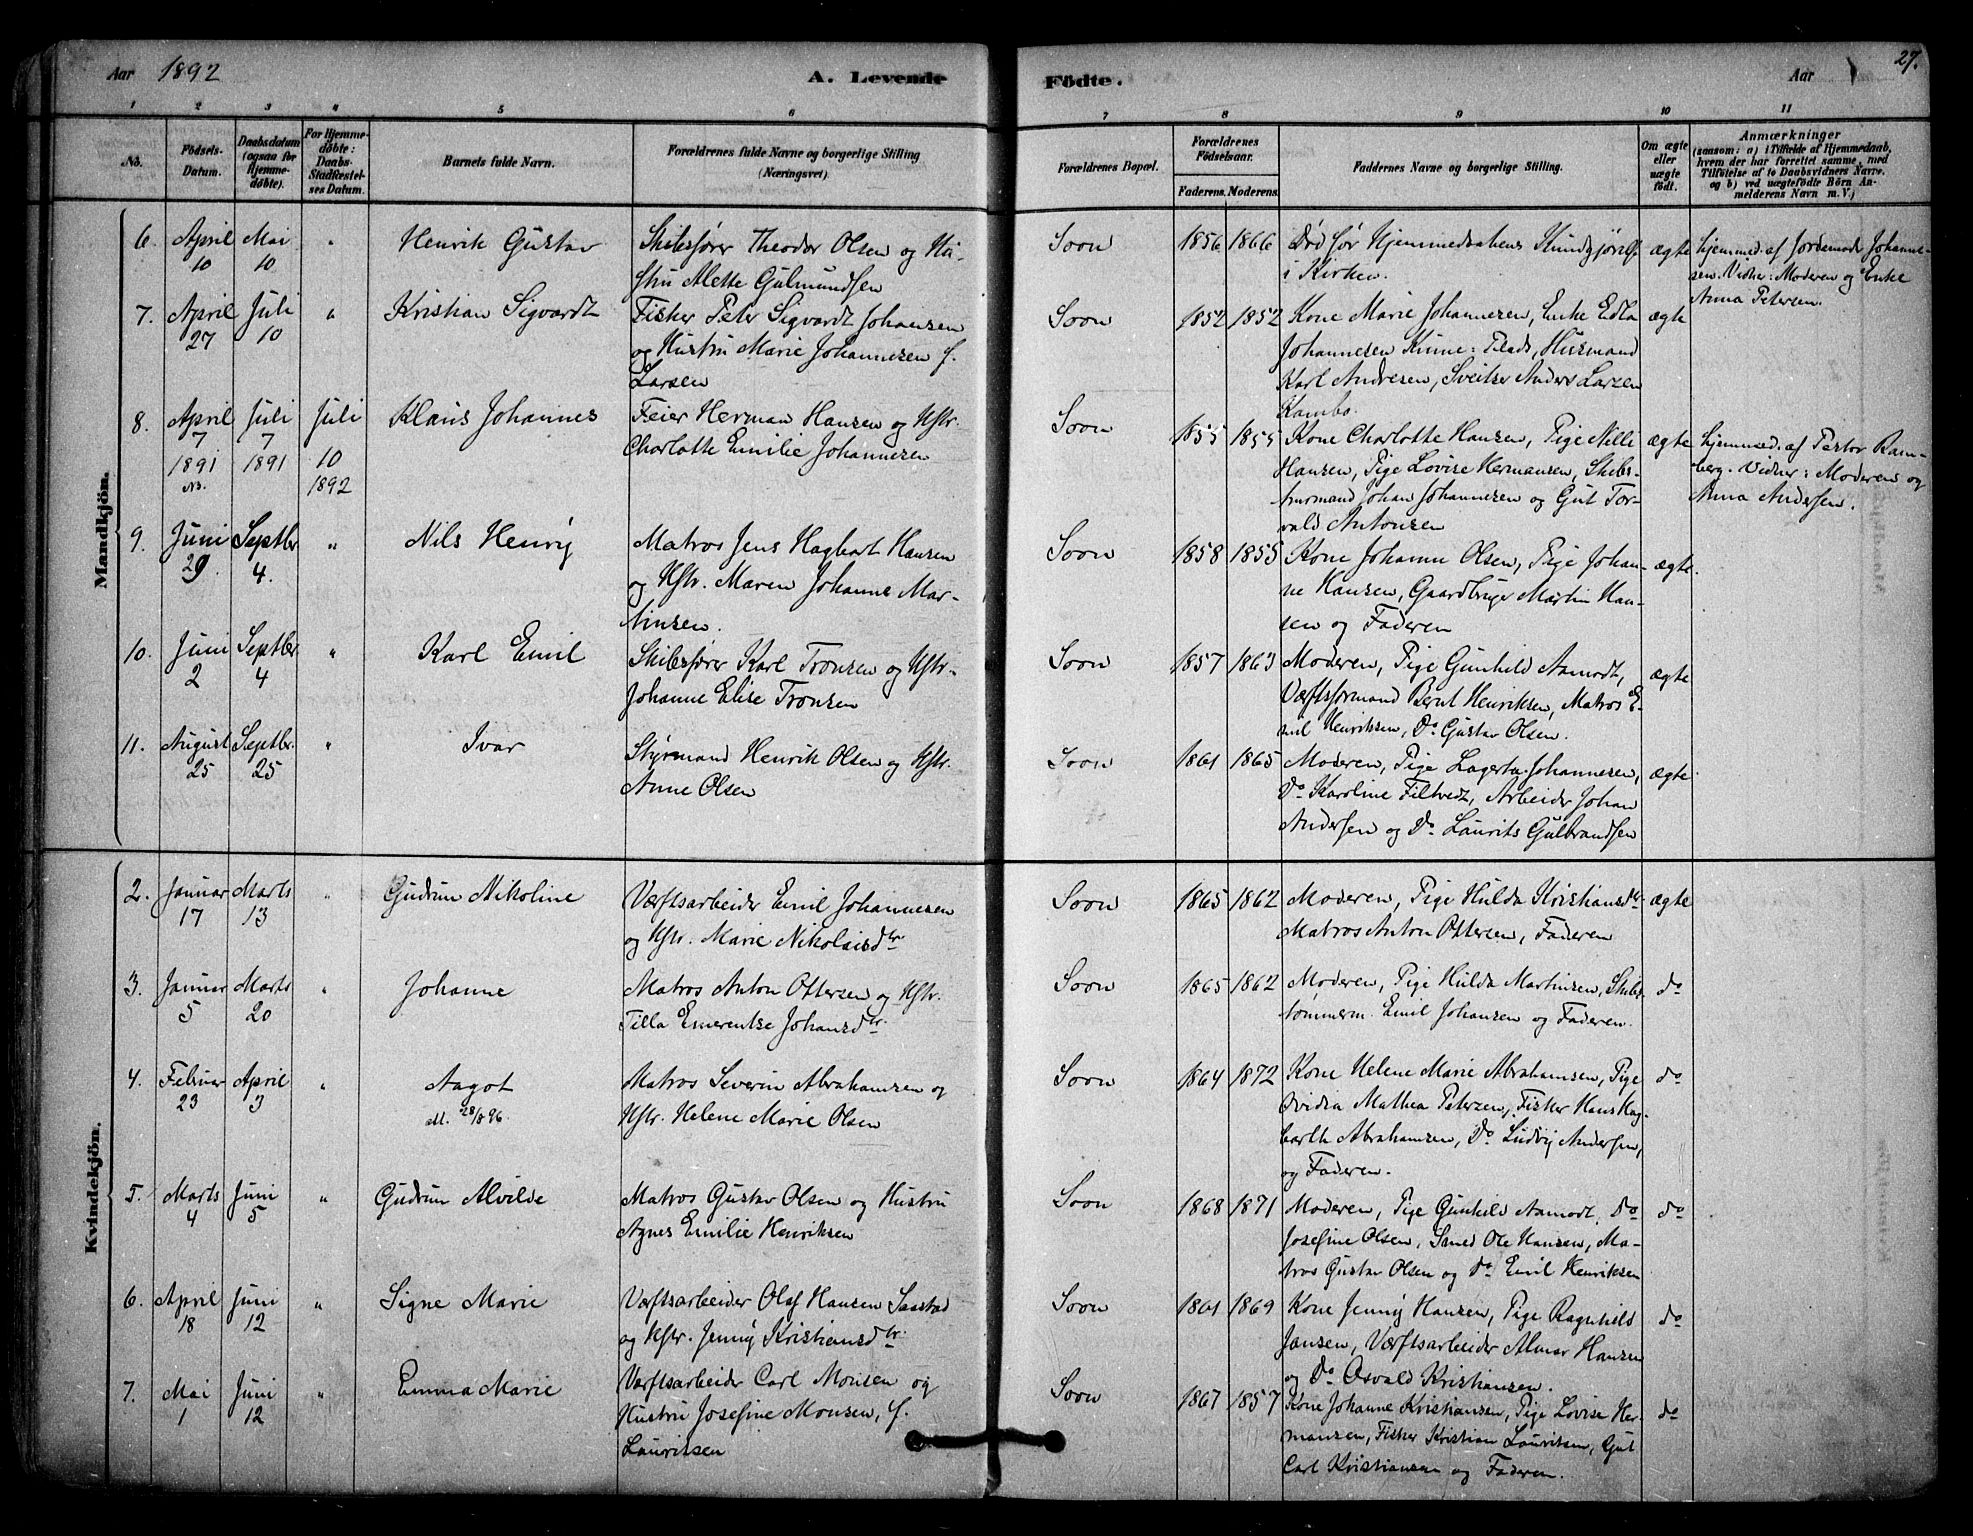 Aar 1892 A. Levende Födte. Aar 27.
1 2 3 4 5 6 7 8 9 10 11
No. Födsels-Datum. Daabsdatum (ogsaa for Hjemme-døbte). For Hjemme-døbte: Daabs-Stadfæstel-ses Datum. Barnets fulde Navn. Forældrenes fulde Navne og borgerlige Stilling (Næringsvei). Forældrenes Bopæl. Forældrenes Födselsaar. Faderens. Moderens. Faddernes Navne og borgerlige Stilling. Om ægte eller uægte födt. Anmærkninger (saasom: a) i Tilfælde af Hjemmedaab, hvem der har forrettet samme, med Tilföielse af to Daabsvidners Navne, og b) ved uægtefödte Börn An-melderens Navn m. V.)
Mandkjön.
6. April 10 Mai 10 " Henrik Gustav
Skibsfører Theodor Olsen og Hu-
stru Alette Gulmundsen
Soon 1856 1866
Død før Hjemmedaabens Kundgjørelse
i Kirken.
ægte
hjemmed. af Jordemoder Johanne-
sen. Vidne: Moderen og Enke
Anna Petersen.
7. April 27 Juli 10 " Kristian Sigvardt
Fisker Peter Sigvardt Johansen
og Hustru Marie Johannesen f.
Larsen
Soon 1852 1852
Kone Marie Johannesen, Enke Edla
Johannesen Huusmand
Karl Andresen, Sveitser Anders Larsen
Kambo.
ægte
8. April 7 1891 NB. Juli 7 1891 Juli 10 1892 Klaus Johannes
Feier Herman Hansen og Hstr.
Charlotte Emilie Johannesen
Soon 1855 1855
Kone Charlotte Hansen, Pige Nilli
Hansen, Pige Lovise Hermansen, Skibs-
tømrmand Johan Johannesen og Gut Tor-
vald Antonsen
ægte
hjemmed. af Pastor Ram-
berg. Vidner: Moderen og
Anna Andersen.
9. Juni 29 Septbr 4. " Nils Henrij
Matros Jens Hagbart Hansen
og Hstr. Maren Johanne Mar-
tinsen.
Soon 1858 1855
Kone Johanne Olsen, Pige Johan-
ne Hansen, Gaardbruger Martin Han-
sen og Faderen
ægte.
10. Juni 2 Septbr 4 " Karl Emil
Skibsfører Karl Tronsen og Hstr.
Johanne Elise Tronsen
Soon 1857 1863
Moderen, Pige Gunhild Aamodt,
Værftsformand Bernt Henriksen, Matros E-
mil Henriksen, Do Gustav Olsen.
ægte
11. August 25 Septbr. 25 " Ivar
Styrmand Henrik Olsen og Hstr.
Anne Olsen
Soon 1861 1865
Moderen, Pige Lagerta Johannesen,
Do Karoline Filtvedt, Arbeider Johan
Andersen og Do Laurits Gulbrandsen
ægte
Kvindekjön.
2. Januar 17 Marts 13 " Gudrun Nikoline
Værftsarbeider Emil Johannesen
og Hstr. Marie Nikolaisdtr
Soon 1865 1862
Moderen, Pige Hulda Kristiansdtr
Matros Anton Ottersen, Faderen
ægte
3. Januar 5 Marts 20 " Johanne
Matros Anton Ottersen og Hstr.
Tilla Emerentse Johansdtr.
Soon 1865 1862
Moderen, Pige Hulda Martinsen, Skibs-
tømmerm. Emil Johansen og Faderen.
do
4. Februar 23 April 3 " Aagot
att. 28/8 96.
Matros Severin Abrahamsen og
Hstr. Helene Marie Olsen
Soon 1864 1872
Kone Helene Marie Abrahamsen, Pige
Ovidia Mathea Petersen, Fisker Hans Hag-
barth Abrahamsen, Do Ludvig Andersen,
og Faderen.
do
5. Marts 4 Juni 5 " Gudrun Alvilde
Matros Gustav Olsen og Hustru
Agnes Emilie Henriksen
Soon 1868 1871
Moderen, Pige Gunhild Aamodt, Do
Josefine Olsen, Smed Ole Hansen, Ma-
tros Gustav Olsen og Do Emil Henriksen
do
6. April 18 Juni 12 " Signe Marie
Værftsarbeider Olaf Hansen Saastad
og Hstr. Jenny Kristiansdtr.
Soon 1861 1869
Kone Jenny Hansen, Pige Ragnhild
Jansen, Værftsarbeider Almar Hansen
og Do Osvald Kristiansen.
do
7. Mai 1 Juni 12 " Emma Marie
Værftsarbeider Carl Monsen og
Hustru Josefine Monsen, f.
Lauritsen
Soon 1867 1857
Kone Johanne Kristiansen, Pige Lovise Her-
mansen, Fisker Kristian Lauritsen, Gut
Carl Kristiansen og Faderen.
do